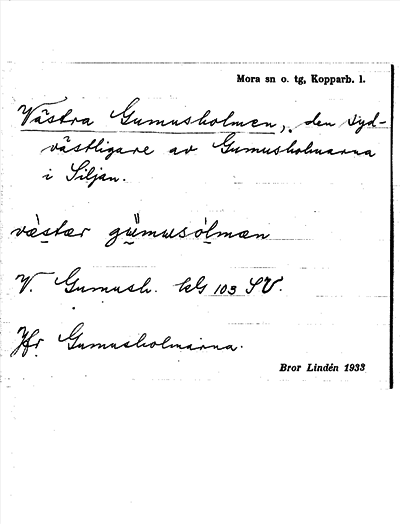 Mora sn o. tg, Kopparb. l.
Västra Gumusholmen, den syd-
västligare av Gumusholmarna
i Siljan.
væstær gu̇musòlmæn
V. Gumush. kG 103 SV.
Jfr Gumusholmarna.
Bror Lindén 1933